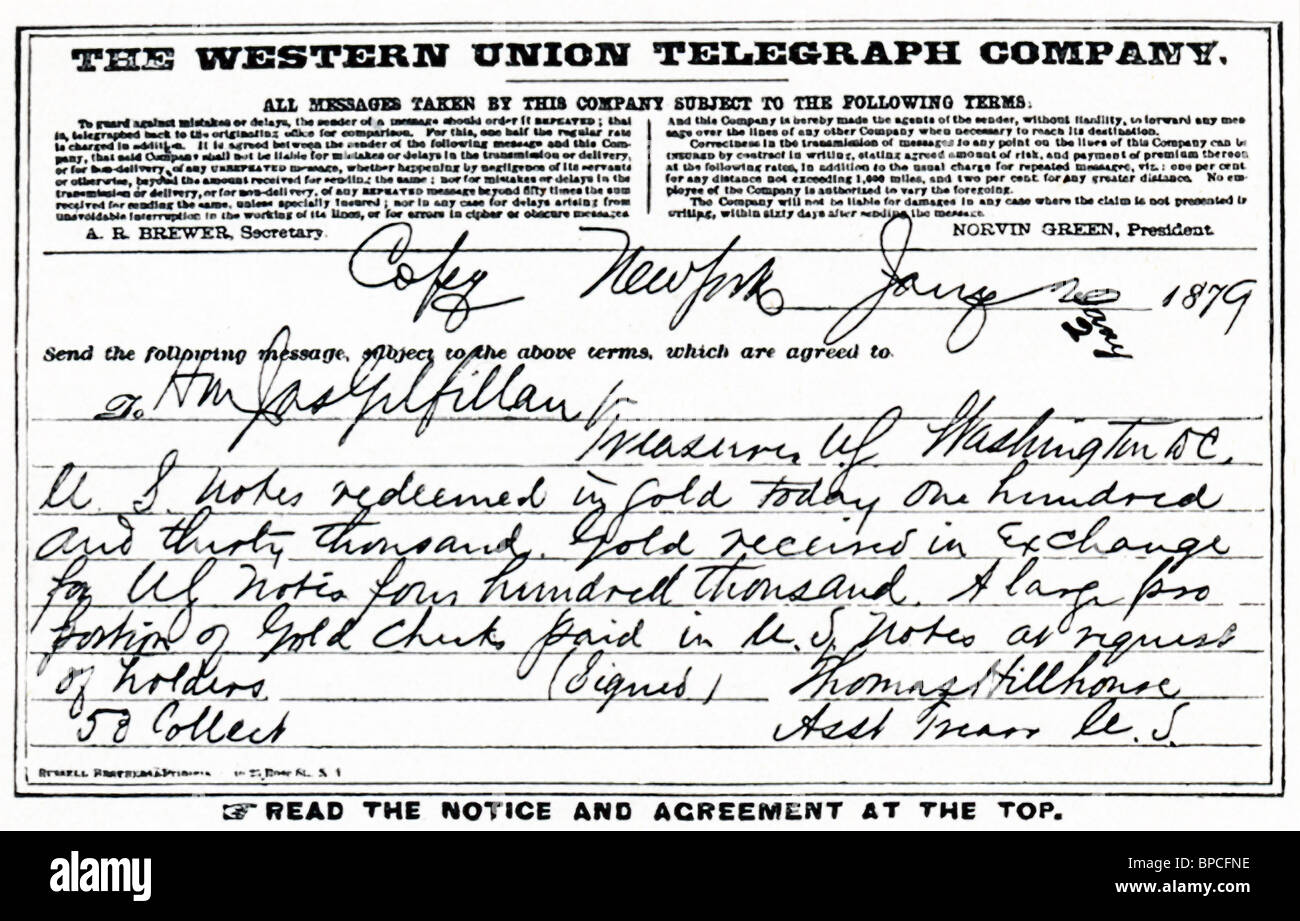 THE WESTERN UNION TELEGRAPH COMPANY.
ALL MESSAGES TAKEN BY THIS COMPANY SUBJECT TO THE FOLLOWING TERMS:
To guard against mistakes or delays, the sender of a message should order it REPEATED; that
is, telegraphed back to the originating office for comparison. For this, one half the regular rate
is charged in addition. It is agreed between the sender of the following message and this Com-
pany, that said Company shall not be liable for mistakes or delays in the transmission or delivery,
or for non-delivery, of any UNREPEATED message, whether happening by negligence of its servants
or otherwise, beyond the amount received for sending the same; nor for mistakes or delays in the
transmission or delivery, or for non-delivery, of any REPEATED message beyond fifty times the sum
received for sending the same, unless specially insured; nor in any case for delays arising from
unavoidable interruption in the working of its lines, or for errors in cipher or obscure messages
A. R. BREWER, Secretary.
And this Company is hereby made the agents of the sender, without liability, to forward any mes-
sage over the lines of any other Company when necessary to reach its destination.
Correctness in the transmission of messages to any point on the lines of this Company can be
INSURED by contract in writing, stating agreed amount of risk, and payment of premium thereon
at the following rates, in addition to the usual charge for repeated messages, viz.: one per cent.
for any distance not exceeding 1,000 miles, and two per cent. for any greater distance. No em-
ployee of the Company is authorized to vary the foregoing.
The Company will not be liable for damages in any case where the claim is not presented in
writing, within sixty days after sending the message.
NORVIN GREEN, President.
Copy New York Jany 1879
Jany
2
Send the following message, subject to the above terms, which are agreed to.
To Hon Jas Gilfillan
Treasurer U.S. Washington D.C.
U. S. Notes redeemed in gold today one hundred
and thirty thousand. Gold received in Exchange
for US Notes four hundred thousand. A large pro
portion of Gold Checks paid in U. S. Notes at request
of holders (Signed) Thomas Hillhouse
50 Collect Asst Treasr U. S.
RUSSELL BROTHERS, Printers Rose St., N. Y.
READ THE NOTICE AND AGREEMENT AT THE TOP.
alamy
Image ID: BPCFNE
www.alamy.com